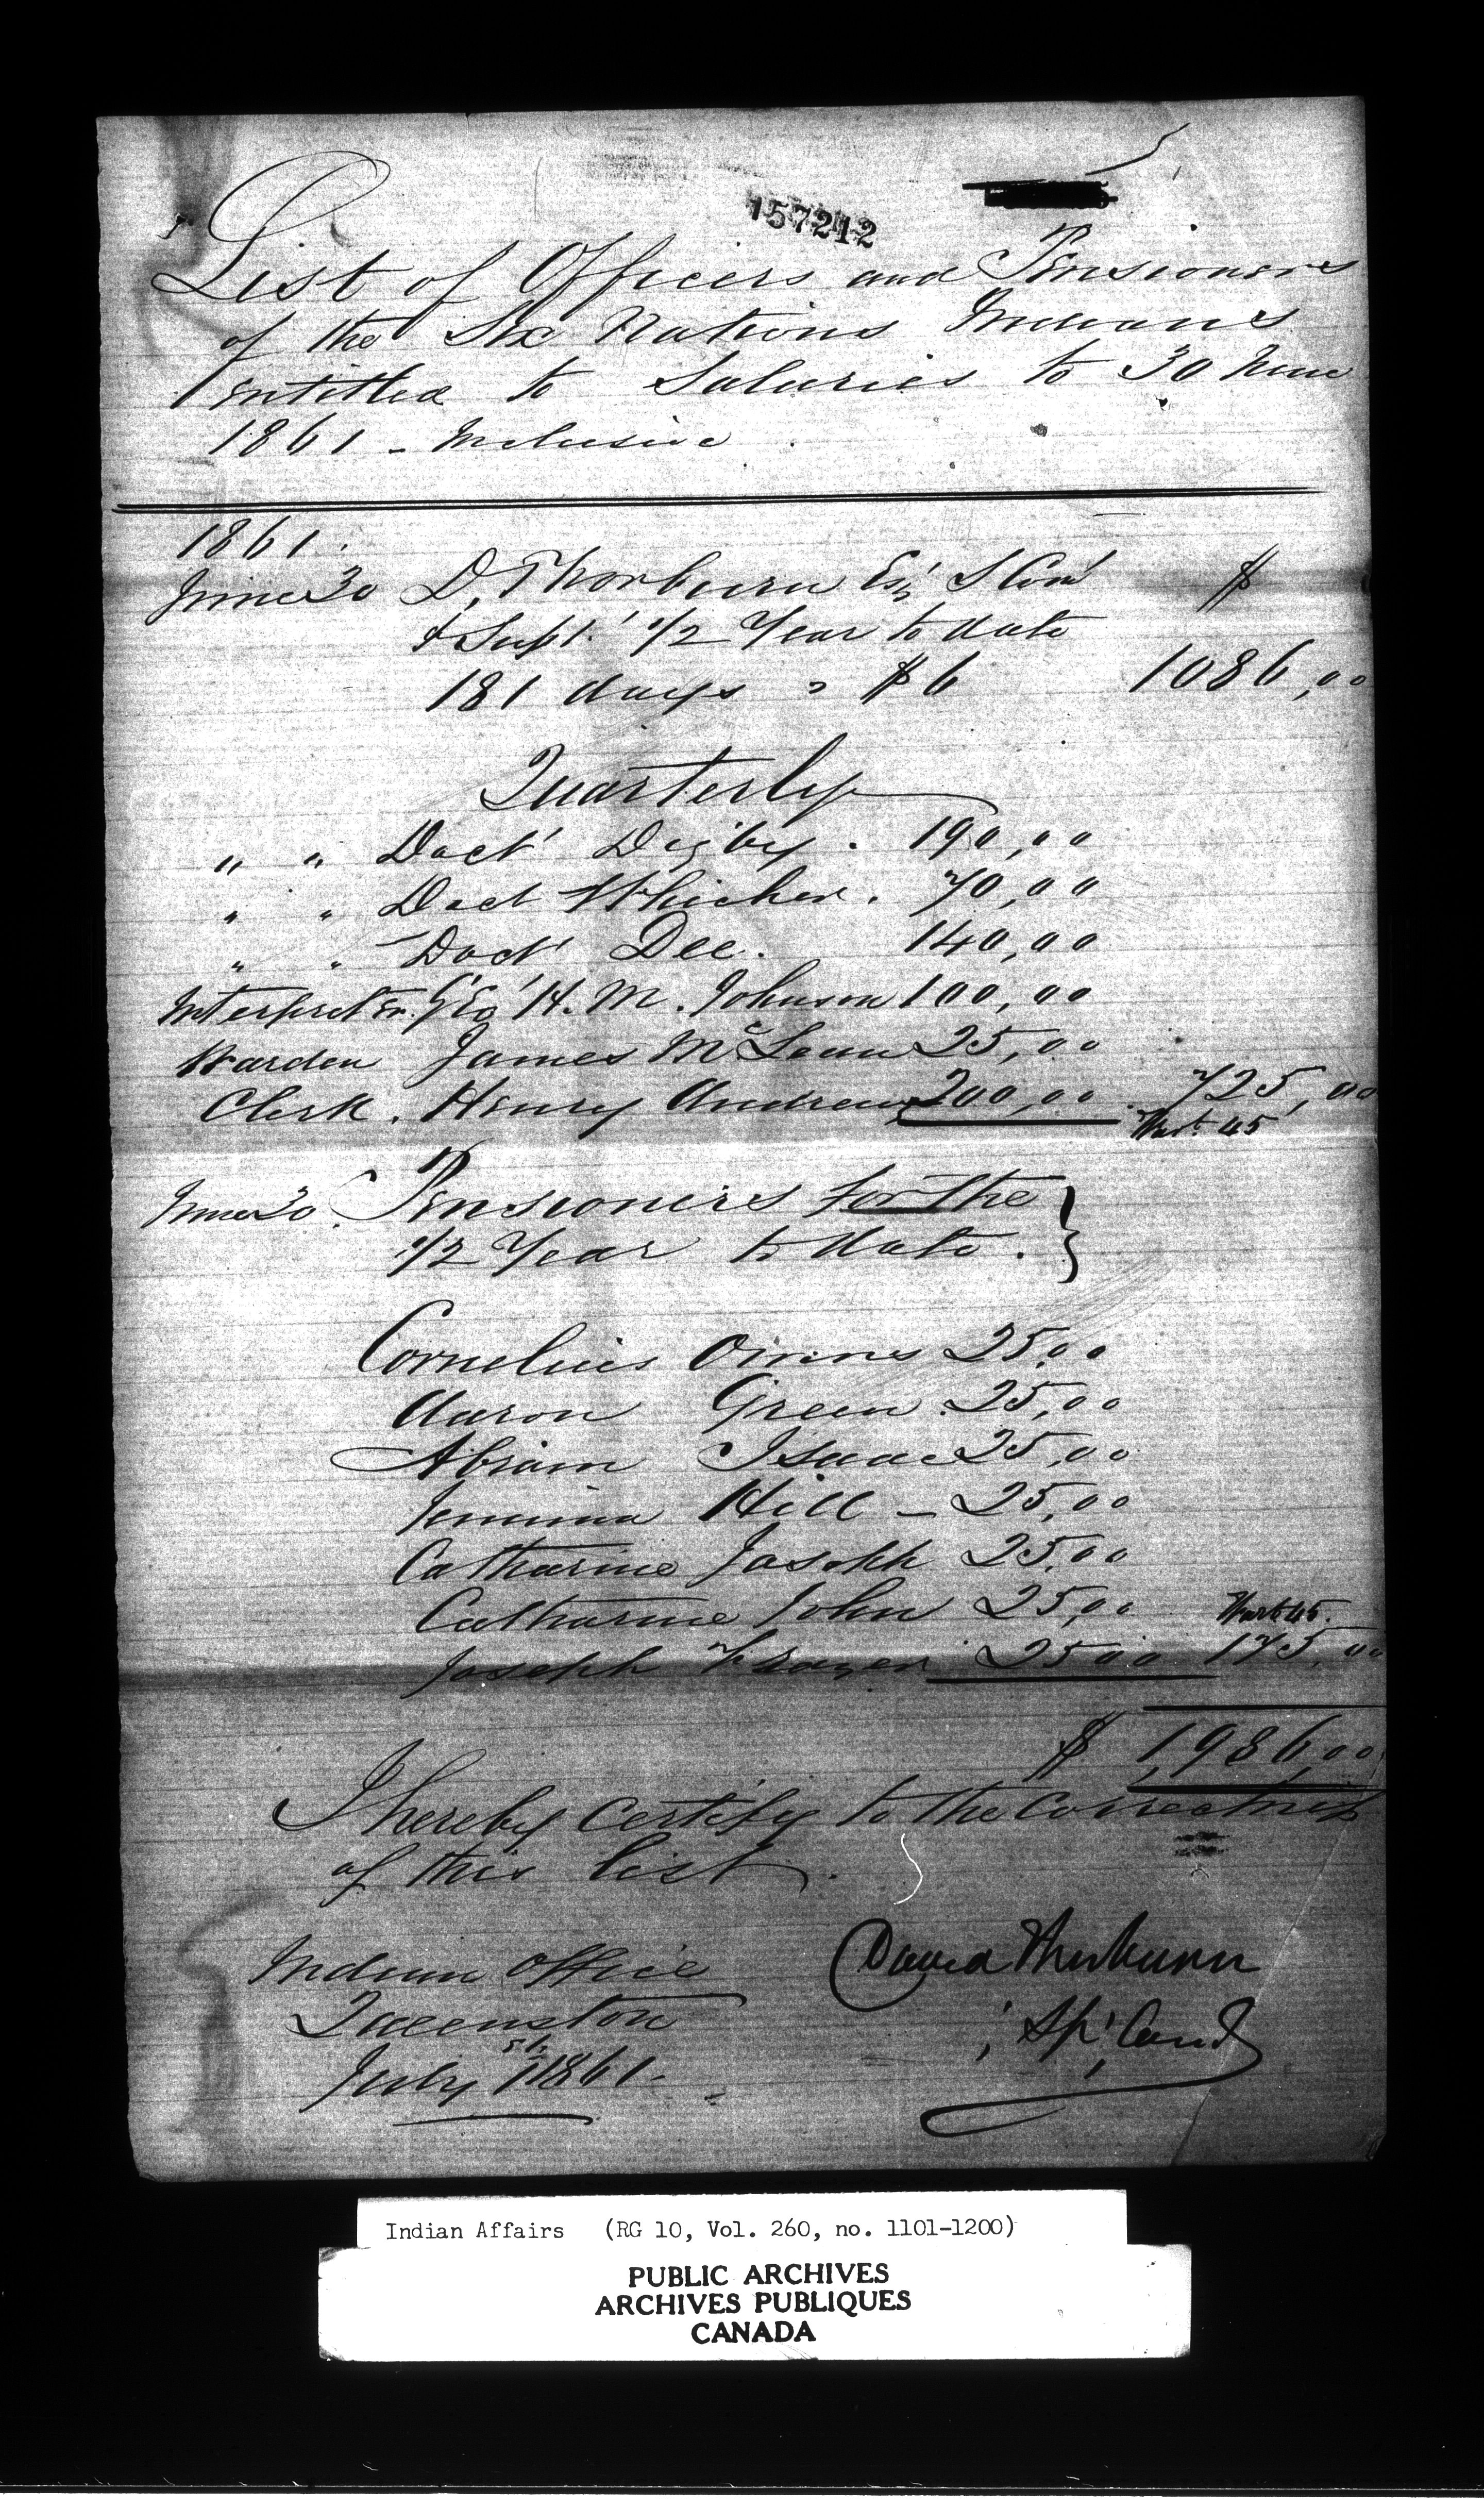 157212
List of Officers and Pensioners
of the Six Nations Indians
entitled to Salaries to 30 June
1861 - inclusive.
1861.
June 30 D, Thorburn Esqr S Comr $
& Supt. 1/2 Year to date
181 days " $6 1086,00
Quarterly
" " Doctr Digby. 190,00
" " Doct Whicher. 70,00
" " Doctr Dee. 140,00
Interpreter. Geo H. M. Johnson 100,00
Warden James McLean 25,00
Clerk. Henry Andrews 200,00 725,00
45
June 30. Pensioners for the
1/2 Year to date. }
Cornelius Owens 25,00
Aaron Green. 25,00
Abram Isaac 25,00
Jemima Hill - 25,00
Catharine Joseph 25,00
Catharine John 25,00 45.
Joseph Frazer 25,00 175,00
$ 1,986,00
I hereby certify to the correctness
of this list.
Indian Office David Thorburn
Queenston Sp. Comr
July 1st 1861.
Indian Affairs (RG 10, Vol. 260, no. 1101-1200)
PUBLIC ARCHIVES
ARCHIVES PUBLIQUES
CANADA